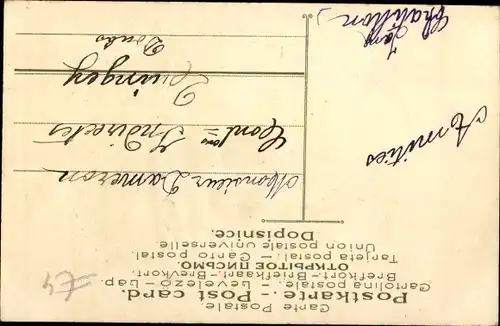 Carte Postale.
Postkarte. - Post card.
Cartolina postale. - Levelező-Lap.
Brefkort.-Briefkaart.-Brevkort.
ОТКРЫТОЕ ПИСЬМО.
Tarjeta postal. - Carto postal.
Union postale universelle.
Dopisnice.
Monsieur Dameron
Contons = Indirectes
Quingey
Doubs
Amitiés
Jane
Chatillon